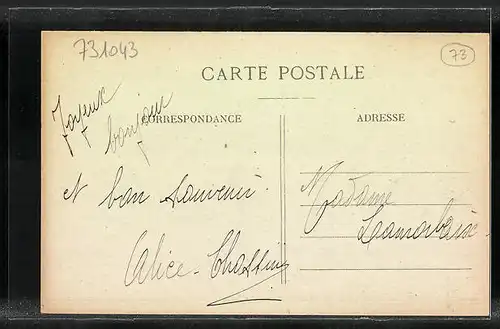 731043
73
CARTE POSTALE
CORRESPONDANCE
ADRESSE
Joyeux
bonjour
et bon souvenir
Alice
Madame